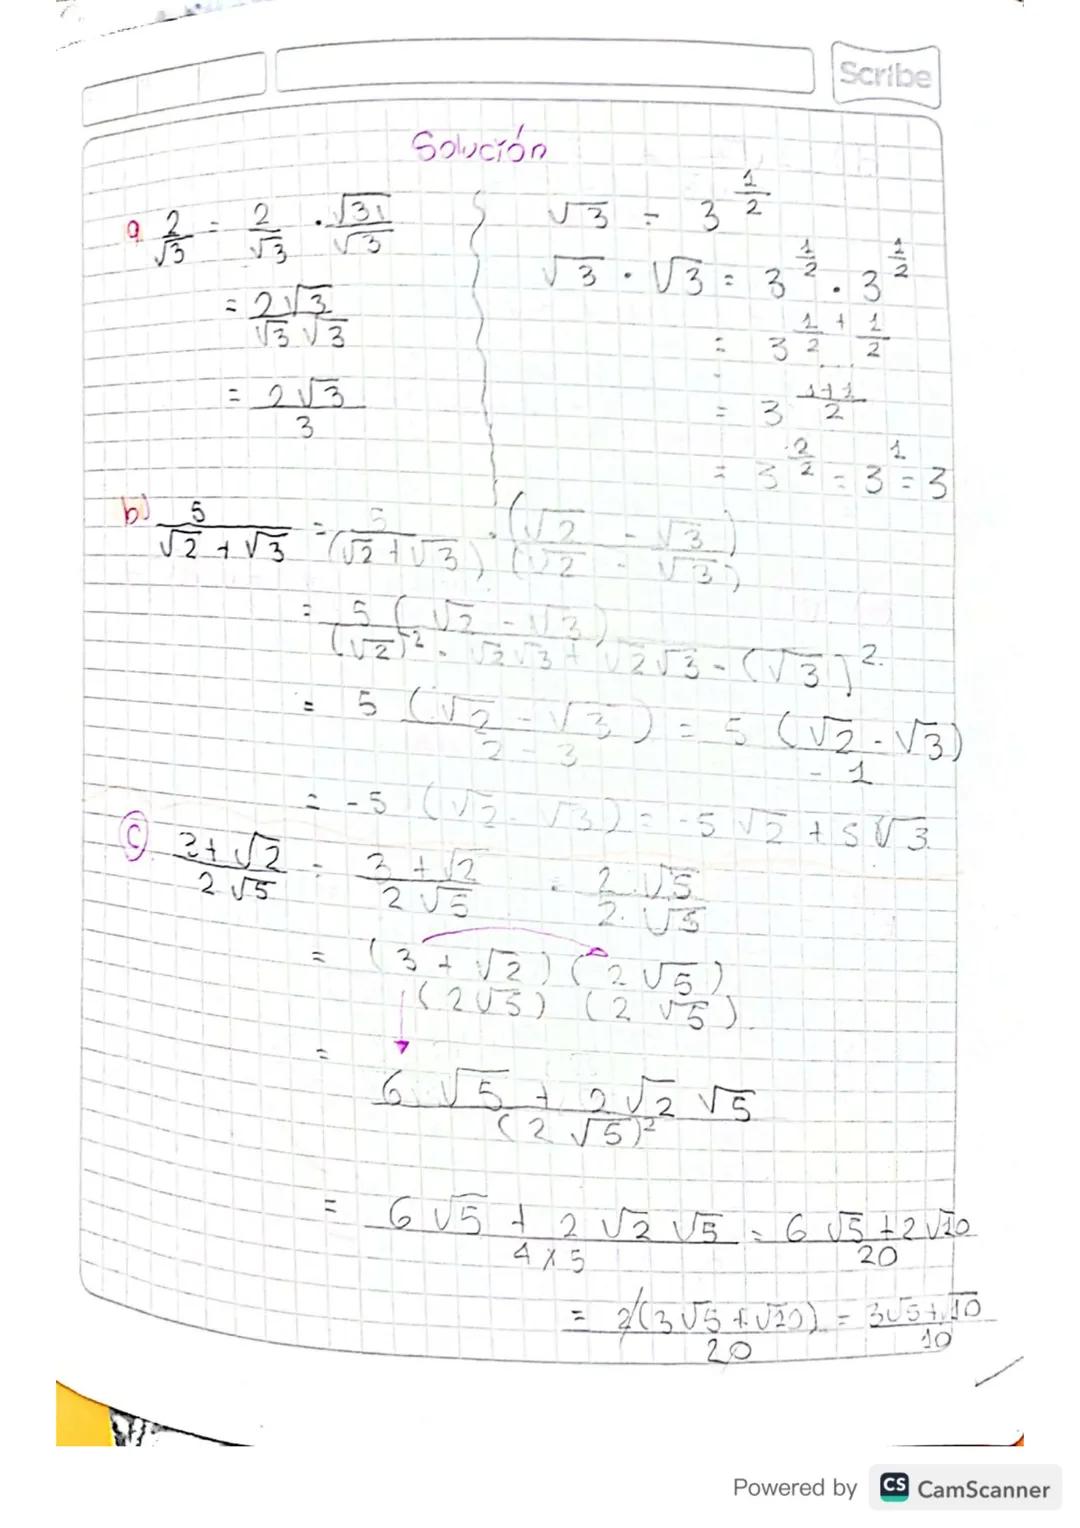 Scribe
Solución
a 2/√3 = 2/√3 · √3/√3
= 2√3/√3 √3
= 2√3/3
√3 = 3^(1/2)
√3 · √3 = 3^(1/2) · 3^(1/2)
= 3^(1/2 + 1/2)
= 3^((1+1)/2)
= 3^(2/2) = 3^1 = 3
b) 5/(√2 + √3) = 5/(√2 + √3) · (√2 - √3)/(√2 - √3)
= 5(√2 - √3)/((√2)² - √2√3 + √2√3 - (√3)²)
= 5(√2 - √3)/(2 - 3) = 5(√2 - √3)/-1
= -5(√2 - √3) = -5√2 + 5√3
c) (3+√2)/(2√5) = (3+√2)/(2√5) · (2·√5)/(2·√5)
= (3+√2)(2√5)/(2√5)(2√5)
= (6√5 + 2√2√5)/(2√5)²
= (6√5 + 2√2√5)/(4x5) = (6√5+2√10)/20
= 2(3√5+√10)/20 = (3√5+√10)/10
Powered by CS CamScanner